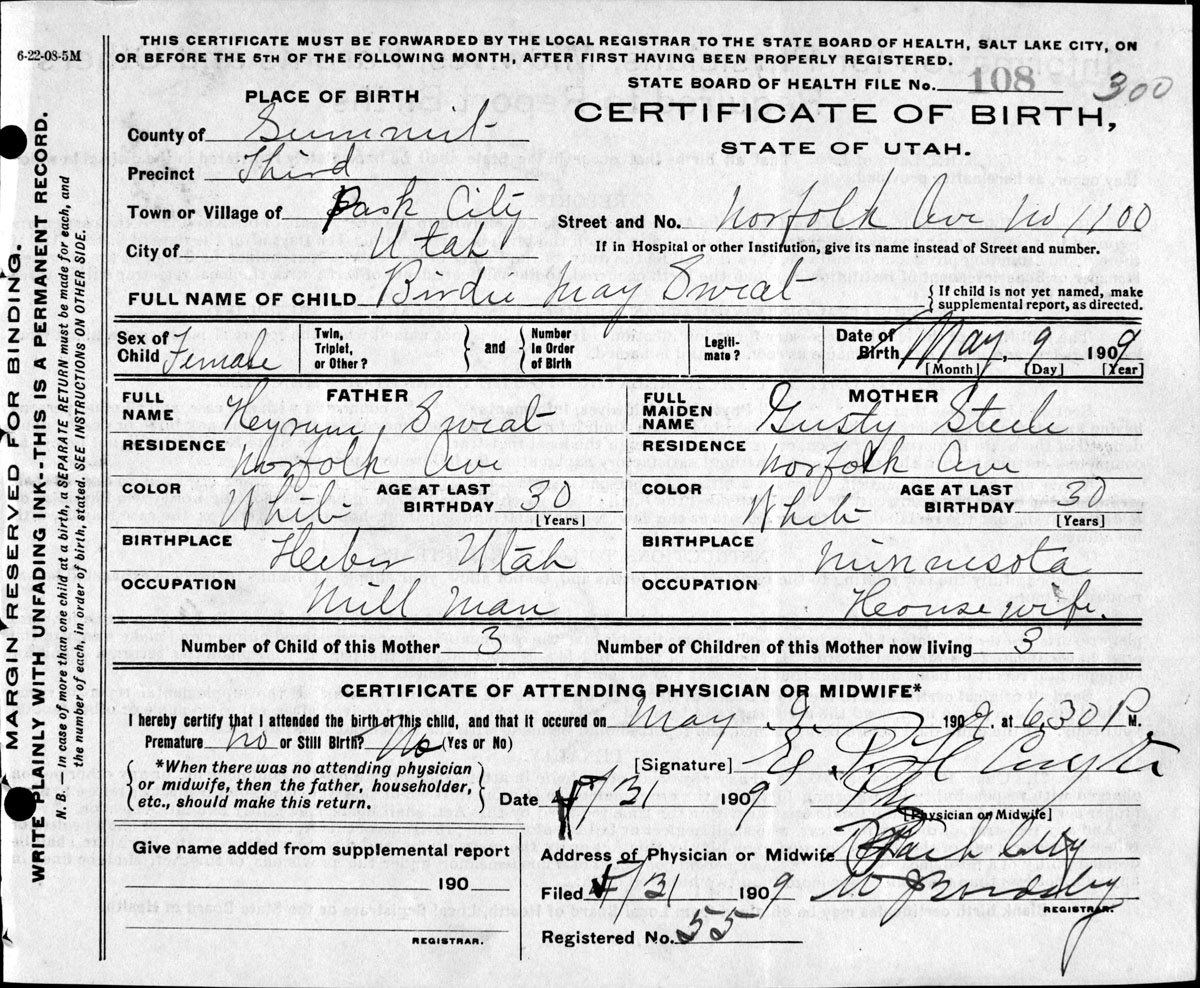 6-22-08-5M
THIS CERTIFICATE MUST BE FORWARDED BY THE LOCAL REGISTRAR TO THE STATE BOARD OF HEALTH, SALT LAKE CITY, ON
OR BEFORE THE 5TH OF THE FOLLOWING MONTH, AFTER FIRST HAVING BEEN PROPERLY REGISTERED.
STATE BOARD OF HEALTH FILE No. 108 300
PLACE OF BIRTH
CERTIFICATE OF BIRTH,
STATE OF UTAH.
County of Summit
Precinct Third
Town or Village of Park City
Street and No. Norfolk Ave No 1100
City of Utah
If in Hospital or other Institution, give its name instead of Street and number.
FULL NAME OF CHILD Birdie May
{ If child is not yet named, make
supplemental report, as directed.
Sex of Child Female
Twin, Triplet, or Other? } and { Number in Order of Birth
Legiti-mate?
Date of Birth May, 9 1909
[Month] [Day] [Year]
FATHER
FULL NAME Heyrum
RESIDENCE Norfolk Ave
COLOR White
AGE AT LAST BIRTHDAY 30
[Years]
BIRTHPLACE Heber Utah
OCCUPATION Mill Man
MOTHER
FULL MAIDEN NAME Gusty Steel
RESIDENCE Norfolk Ave
COLOR White
AGE AT LAST BIRTHDAY 30
[Years]
BIRTHPLACE Minnesota
OCCUPATION House wife.
Number of Child of this Mother 3 Number of Children of this Mother now living 3
CERTIFICATE OF ATTENDING PHYSICIAN OR MIDWIFE*
I hereby certify that I attended the birth of this child, and that it occured on May 9. 1909. at 6.30 P M.
Premature No or Still Birth? No (Yes or No)
{ *When there was no attending physician
or midwife, then the father, householder,
etc., should make this return. }
[Signature] E. P.
Date 5/31 1909
[Physician or Midwife]
Address of Physician or Midwife Park City
Filed 5/31 1909
REGISTRAR.
Registered No. 55
Give name added from supplemental report
190
REGISTRAR.
MARGIN RESERVED FOR BINDING.
WRITE PLAINLY WITH UNFADING INK--THIS IS A PERMANENT RECORD.
N. B.—In case of more than one child at a birth, a SEPARATE RETURN must be made for each, and
the number of each, in order of birth, stated. SEE INSTRUCTIONS ON OTHER SIDE.